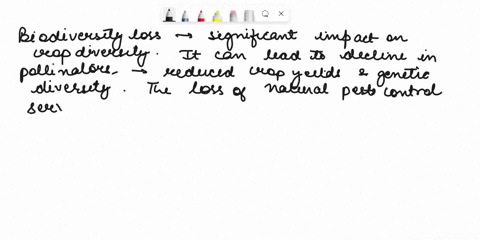 Biodiversity loss → significant impact on
crop diversity. It can lead to decline in
pollinators → reduced crop yields & genetic
diversity. The loss of natural pest control
serv